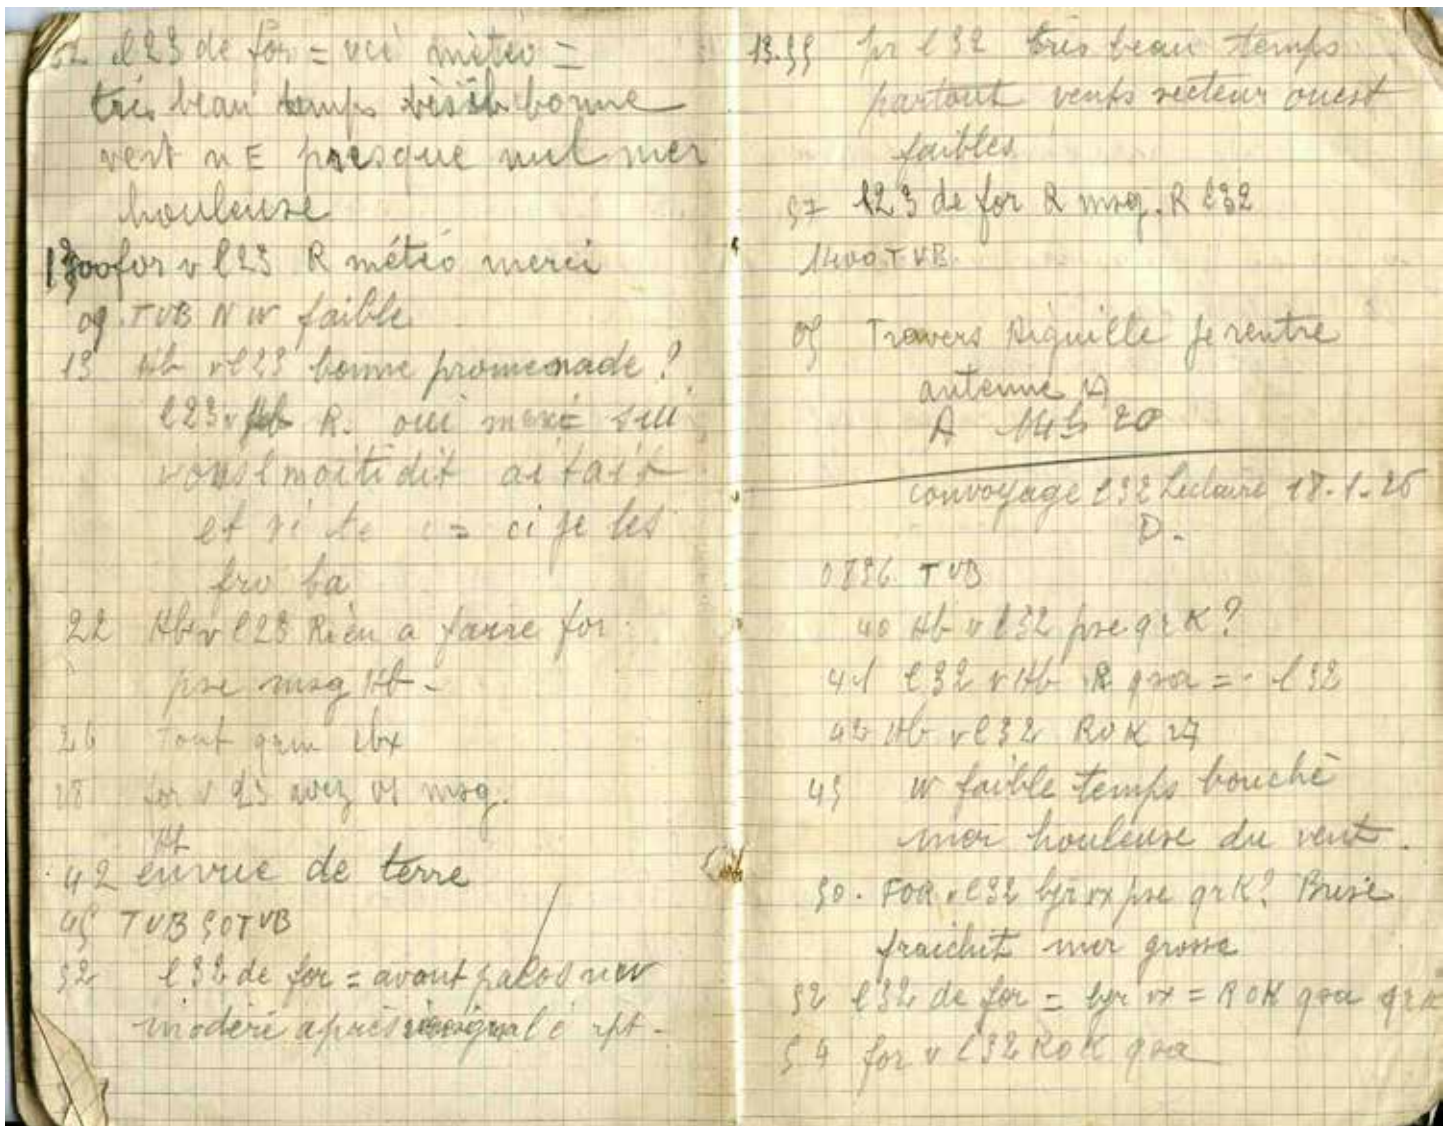 52 l23 de for = vci météo =
très beau temps bonne
vent n E presque nul mer
houleuse
1300 for v l23 R météo merci
05 TVB N W faible
13 Hb v l23 bonne promenade ?
l23 v Hb R. oui merci
et je les
22 Hb v l23 Rien a faire for
pse msg Hb -
26 Tout
28 for v l23 avez vs msg.
42 en vue de terre
45 TVB 50 TVB
52 l32 de for = avant
modéré après rpt -
13.55 pr l32 très beau temps
partout vents secteur ouest
faibles
57 l23 de for R msg. R l32
1400 TVB.
05 Travers Aiguille je rentre
antenne
A 14h 20
convoyage l32 Leclaire 18.1.26
D -
0836 TVB
40 Hb v l32 pse qrk ?
41 l32 v Hb R qsa = - l32
42 Hb v l32 ROK
45 W faible temps bouché
mer houleuse du vent.
50. FOR v l32 bjr vx pse qrk? Brise
fraichit mer grosse
52 l32 de for = bjr vx = ROK qsa qrk
54 for v l32 ROK qsa